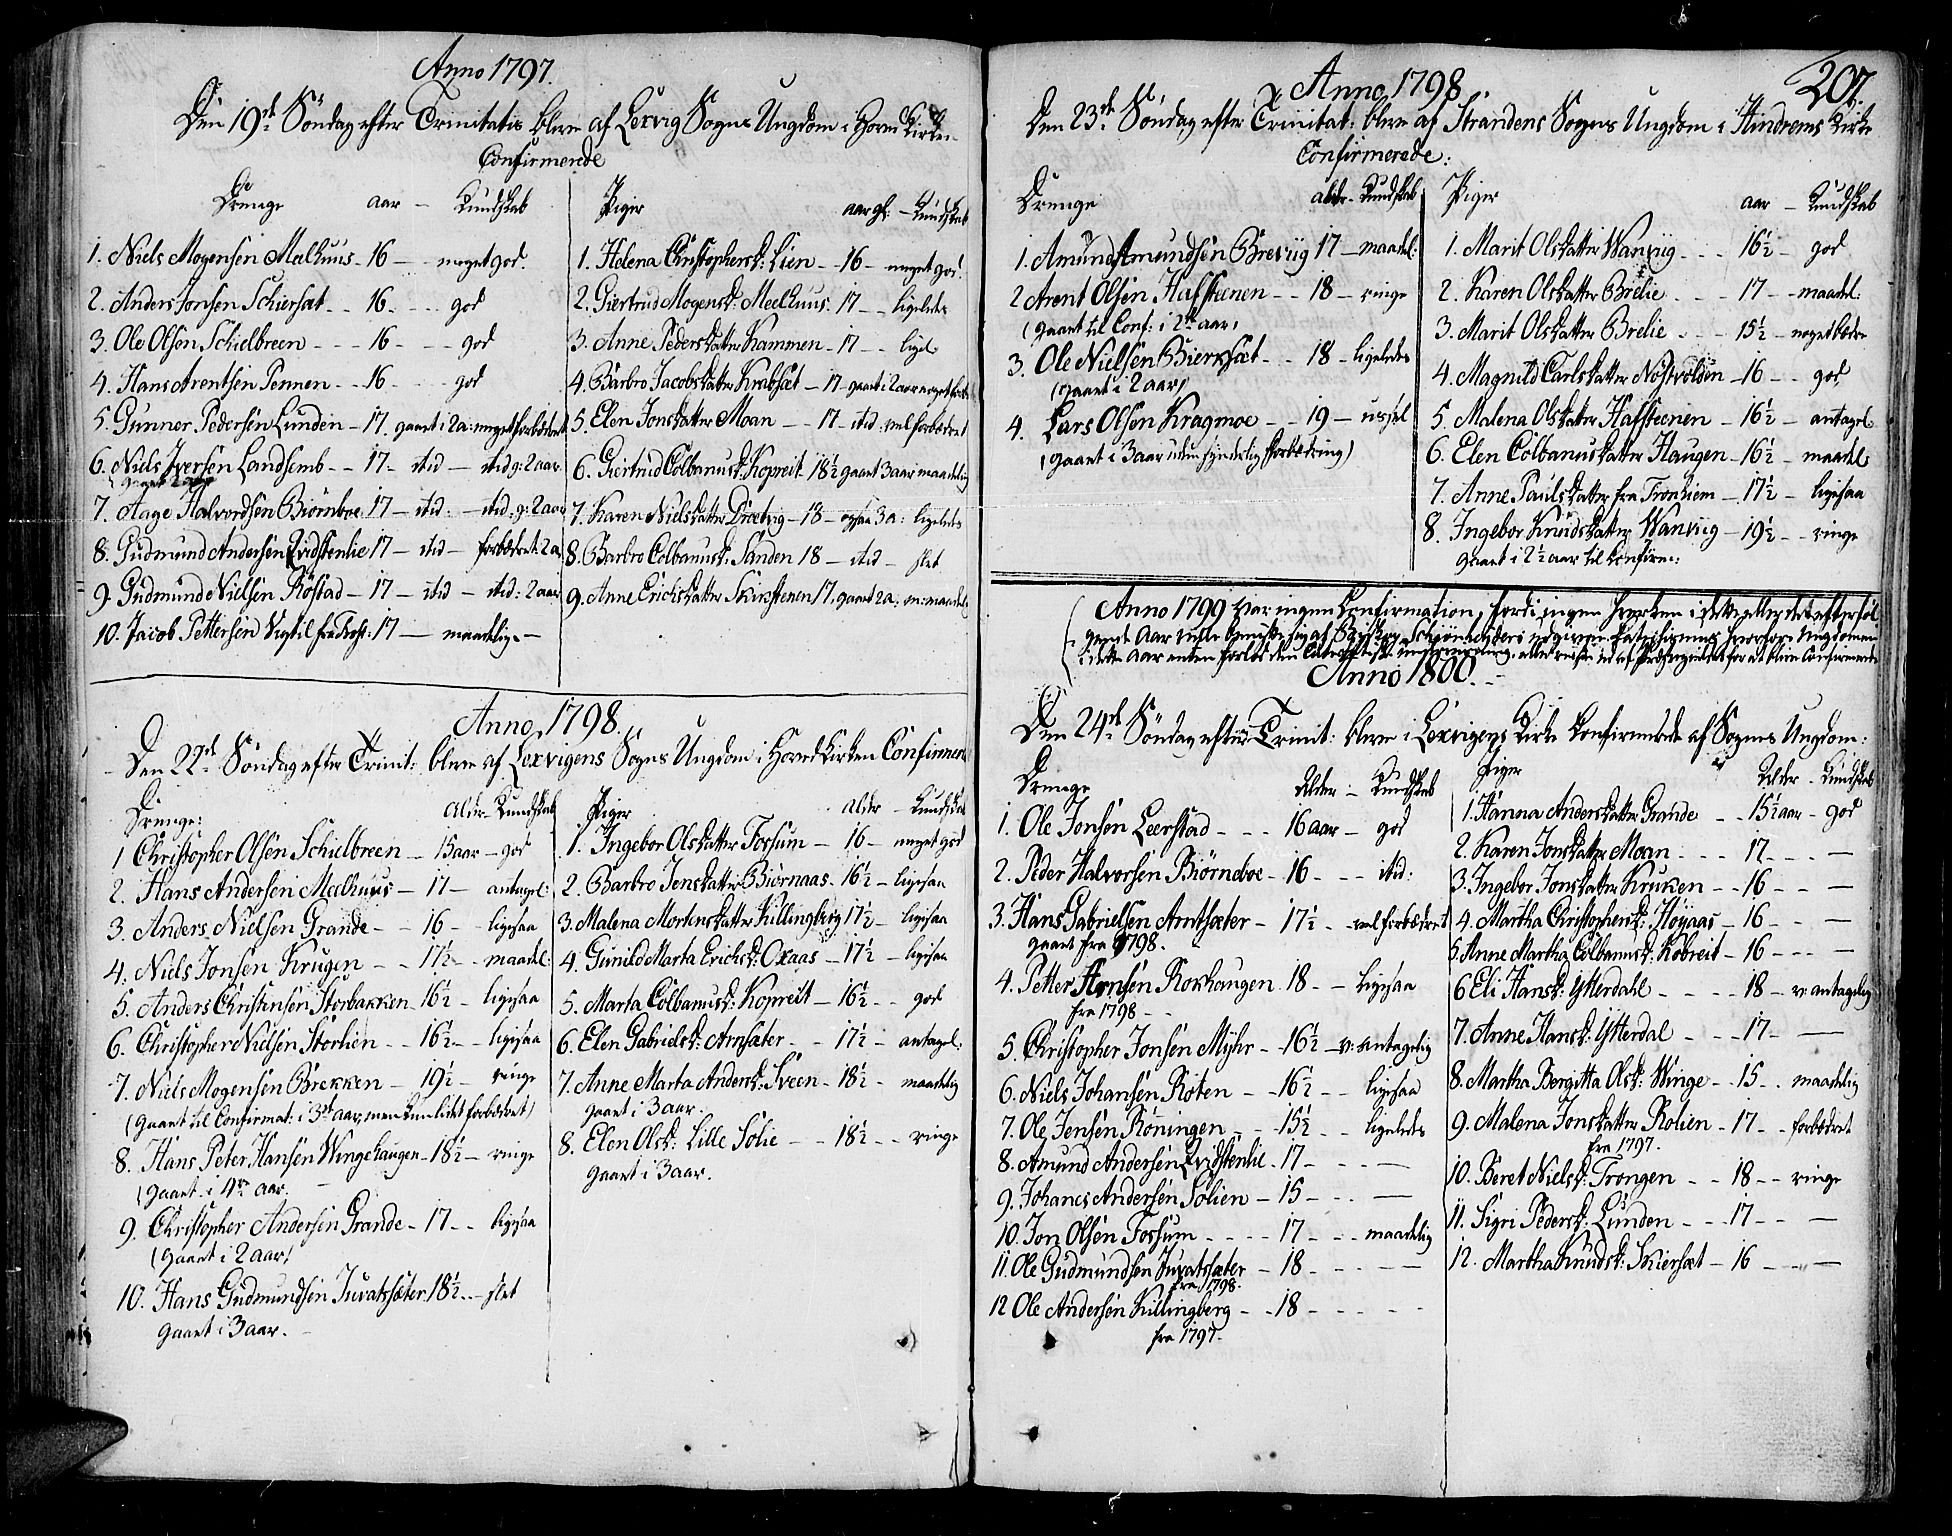 Anno 1797.
Den 19de Söndag efter Trinitatis bleve af Lexvig Sogns Ungdom i Hoved Kirken
Confirmerede
Drenge aar — Kundskab
1. Niels Mogensen Melhuus - 16 — meget god.
2. Anders Jonsen Schiersæt - - 16. - - - god
3. Ole Olsen Schielbreen - - - 16 - - - god
4. Hans Arentsen Pennen - - 16 - - - god
5. Gunner Pedersen Lunden - 17. gaaet i 2 a: meget forbedret
6. Niels Iversen Landsemb - - 17 - itid — itid g: 2 aar.
7. Aage Halvordsen Biörnboe. 17 — itid: — itid: g: 2 aar
8. Gudmund Andersen Qvidstenlie 17 — itid — forbedret 2 a.
9. Gudmund Nielsen Röstad - 17 — itid — itid: 2 aar
10. Jacob Pettersen 17 — maadelig. —
Piger aar gl: — Kundskab
1. Helena Christophersd: Lien - - 16 - meget god.
2. Giertrud Mogensd: Meelhuus. 17 - - ligeledes
3. Anne Pedersdatter Kammen - 17 - - ligel:
4. Barbro Jacobsdatter Krabsæt - 17 gaaet i 2 aar meget
5. Elen Jonsdatter Moan - - 17 - itid. vel forbedret
6. Giertrud Colbanusd: Kopreit - 18½ gaaet 3 aar maadelig
7. Karen Nielsdatter - 18 - 3 a: ligeledes
8. Barbro Colbanusd: Sanden 18 — itid — slet
9. Anne Erichsdatter Skirstenen 17. gaaet 2 a: maadel:
Anno 1798.
Den 22de Söndag efter Trinit: bleve af Lexvigens Sogns Ungdom i Hoved Kirken Confirmered
Drenge: Alder - Kundskab
1 Christopher Olsen Schielbreen - 15 aar - god
2. Hans Andersen Meelhuus - 17 - antagel:
3. Anders Nielsen Grande - - 16 - ligesaa
4. Niels Jonsen Krugen - - 17½ - maadel:
5. Anders Christensen Storbakken. 16½ - ligesaa
6. Christopher Nielsen Storlien - - 16½ - ligesaa
7. Niels Mogensen Brekken - 19½ - ringe
(Gaaet til Confirmat: i 3de aar, men kun lidet forbedret)
8. Hans Peter Hansen Wingehaugen - 18½ - ringe
(gaaet i 4re aar.
9. Christopher Andersen Grande - 17 - - ligesaa
(gaaet i 2 aar)
10. Hans Gudmundsen Juvatsæter. 18½ - - slet
gaaet i 3 aar. -
Piger Alder - Kundskab
1. Ingebor Olsdatter Fossum - 16 - meget god
2. Barbro Jensdatter Biörnaas - 16½ - ligesaa
3. Malena Mortensdatter Killingberg 17½ - ligesaa
4. Gunild Marta Erichsd: Oxaas - 17½ - ligesaa
5. Marta Colbanusd: Kopreit - 16½ - - god
6. Elen Gabrielsd: Arnsæter - - 17½ - antagel:
7. Anne Marta Andersd: Sveen - 18½ - maadelig
gaaet i 3 aar.
8. Elen Olsd: Lille Solie - - 18½ - - ringe
gaaet i 3 aar.
207.
Anno 1798
Den 23de Söndag efter Trinitat: bleve af Strandens Sogns Ungdom i Hindrems Kirke
Confirmerede:
Drenge alder - Kundskab
1. Amund Amundsen Breviig 17 - maadel:
2 Arent Olsen Hafsteenen - - 18 - ringe
(gaaet til Conf: i 2de aar)
3. Ole Nielsen Bierksæt - - 18 - ligeledes
(gaaet i 2 aar)
4. Lars Olsen Kragmoe - - 19 - ussel
(gaaet i 3 aar uden synderlig forbedring)
Piger aar - Kundskab
1. Marit Olsdatter Wanviig - - - 16½ - god
2. Karen Olsdatter Brelie - - - 17 - - maadel:
3. Marit Olsdatter Brelie - - - 15½ - noget bedre
4. Magnild Carlsdatter Nöstvolden - 16 - - god
5. Malena Olsdatter Hafsteenen - 16½ - antagel:
6. Elen Colbanusdatter Haugen - 16½ - maadel
7. Anne Paulsdatter fra Tronhiem - 17½ - ligesaa
8. Ingebor Knudsdatter Wanviig - 19½ - - ringe
gaaet i 2½ aar til Confirm:
Anno 1799 var ingen Confirmation, fordi ingen hverken i dette eller det efterföl
gende Aar vilde Biskop Schiönheyders udgivne Catechismus, hvorfore Ungdommen
i dette Aar enten forlod den eller reiste ud af Præstegieldet for at blive Confirmerede
Anno 1800. - -
Den 24de Söndag efter Trinit: bleve i Lexvigens Kirke Confirmerede af Sognets Ungdom:
Drenge Alder - Kundskab
1. Ole Jonsen Leerstad - - - 16 aar - god
2. Peder Halvorsen Biörneboe - 16 - - - itid:
3. Hans Gabrielsen Arntsæter - 17½ - - vel forbedret
gaaet fra 1798.
4. Petter Arnsen Rokhaugen 18 - - ligesaa
fra 1798 - -
5. Christopher Jonsen Myhr - - 16½ - v: antagelig
6. Niels Johansen Röten - - 16½ - - ligesaa
7. Ole Jensen Röningen - - - 15½ - - ligeledes
8. Amund Andersen Qvidstenlie - 17 - - - —
9. Johanes Andersen Solien - 15 - - - —
10. Jon Olsen Fossum - - - - 17 - - - maadelig
11. Ole Gudmundsen Juvatsæter - 18 - - - - —
fra 1798.
12 Ole Andersen Killingberg - - 18 - - - -
fra 1797.
Piger Alder - Kundskab
1. Hanna Andersdatter Grande - - 15½ aar - god
2. Karen Jonsdatter Moan - - - 17 - - - —
3. Ingebor Jonsdatter Kruken - - 16 - - —
4. Martha Christophersd: Höyaas - 16 - - —
5. Anne Martha Colbanusd: Kobreit - 16 - - - —
6 Eli Hansd: Ytterdahl - - - - 18 - v: antagelig
7. Anne Hansd: Ytterdal - - - 17 - - —
8. Martha Bergitta Olsd: Winge - - 15 - - maadelig
9. Malena Jonsdatter Rolien - 17 - - forbedret
fra 1797.
10. Beret Nielsd: Trongen - - 18 - - ringe
11. Sigri Pedersd: Lunden - - - 17 - - —
12. Martha Knudsd: Skiersæt - 16 - - —